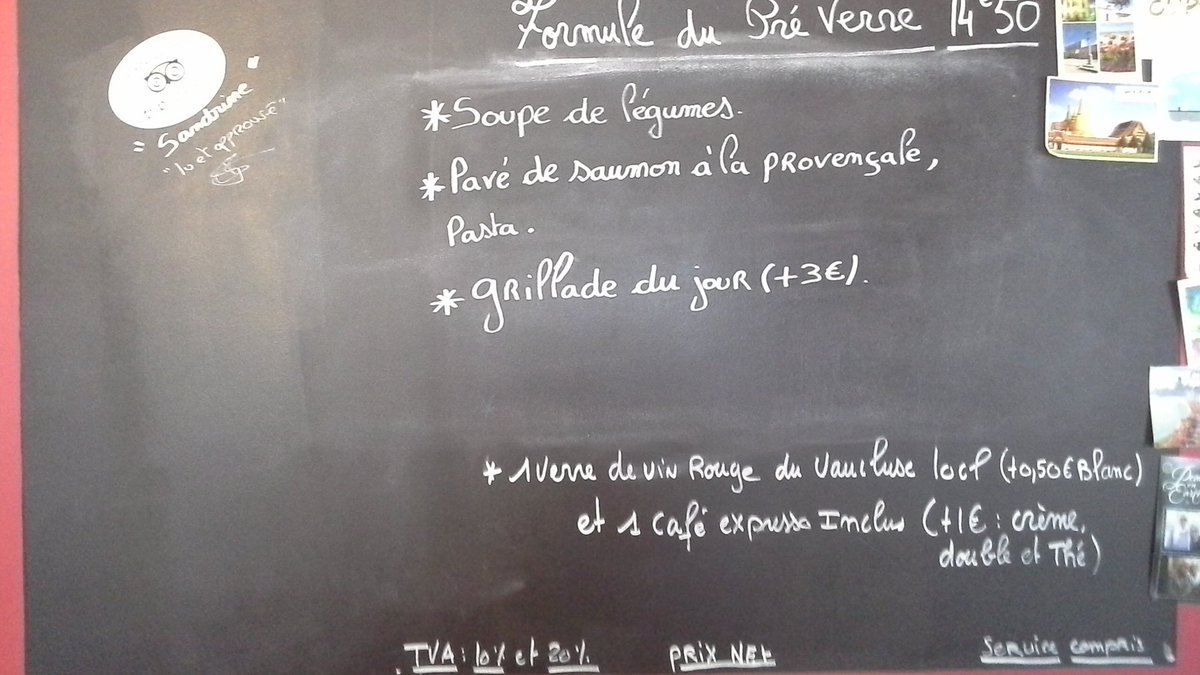 Formule du Pré Verre 14€50
= Sandrine "
"lu et approuvé"
* Soupe de légumes.
* Pavé de saumon à la provençale,
Pasta.
* Grillade du jour (+3€).
* 1 verre de vin Rouge du Vaucluse 10cl (+0,50€ Blanc)
et 1 café expresso Inclus (+1€ : crème,
double et Thé)
TVA : 10% et 20% PRIX NET Service compris